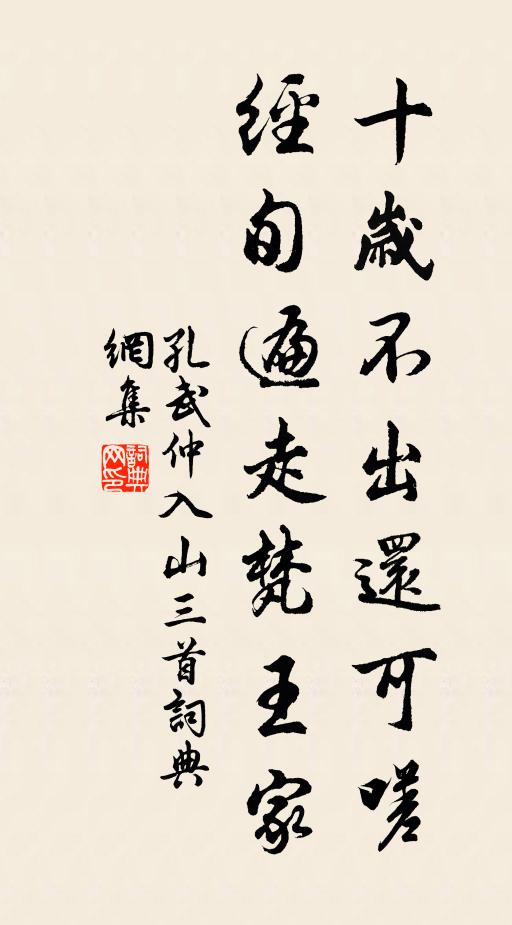 十歲不出還可嗟
經旬遍走梵王家
孔武仲入山三首詞典
網集
詞典
网印